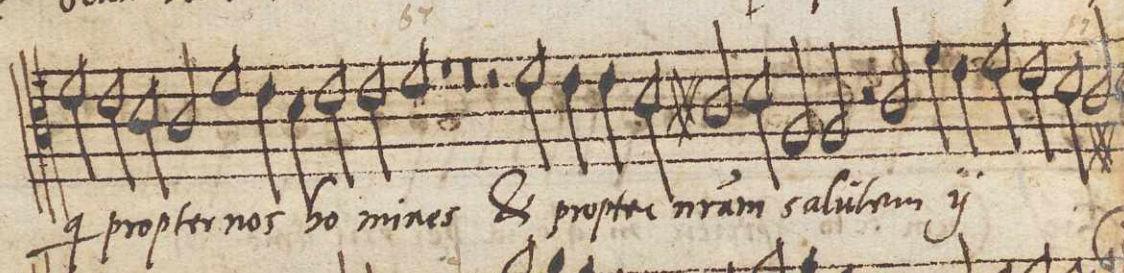 q propter nos ho mines & propter nrām salutem ij